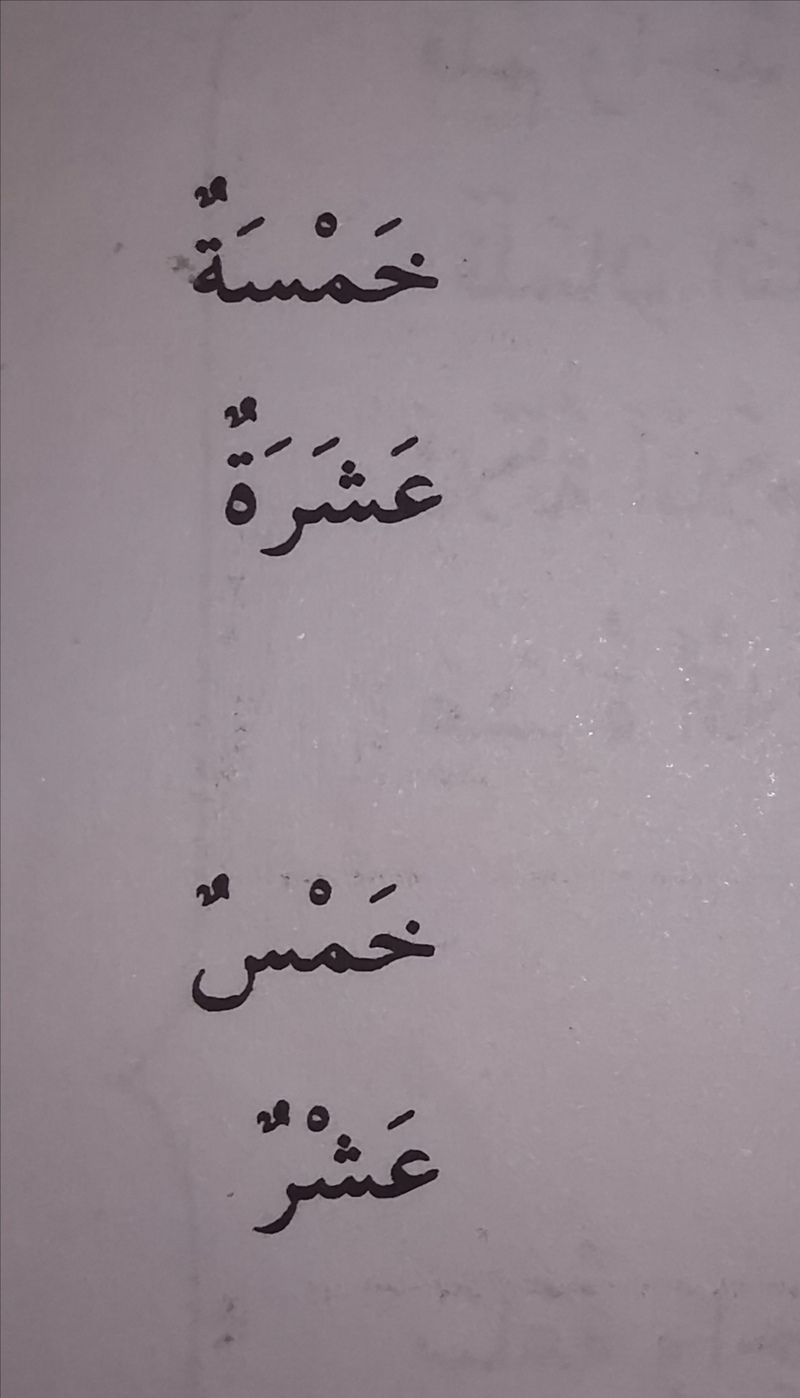 خَمْسَةٌ
عَشَرَةٌ
خَمْسٌ
عَشْرٌ